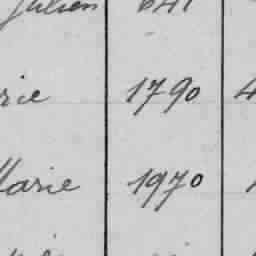 Julien 641
rie 1790 4
Marie 1970